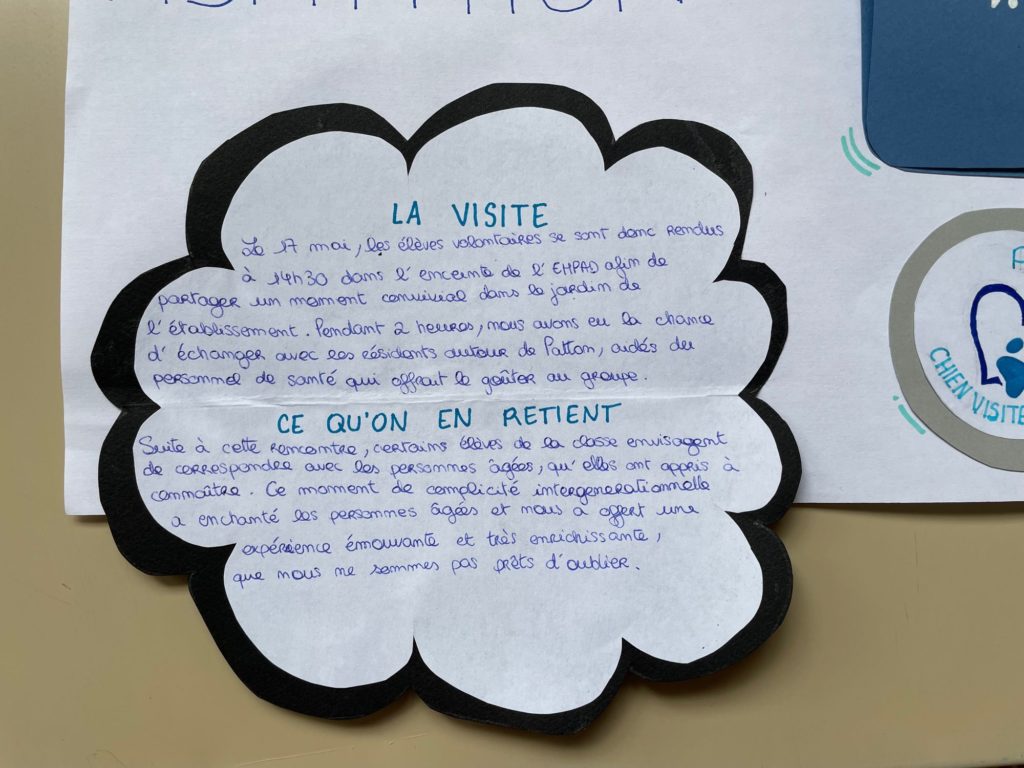 LA VISITE
Le 17 mai, les élèves volontaires se sont donc rendus
à 14h30 dans l'enceinte de l'EHPAD afin de
partager un moment convivial dans le jardin de
l'établissement. Pendant 2 heures, nous avons eu la chance
d'échanger avec les résidents autour de Patton, aidés du
personnel de santé qui offrait le goûter au groupe.
CE QU'ON EN RETIENT
Suite à cette rencontre, certains élèves de la classe envisagent
de correspondre avec les personnes âgées, qu'elles ont appris à
connaître. Ce moment de complicité intergenerationnelle
a enchanté les personnes âgées et nous a offert une
expérience émouvante et très enrichissante,
que nous ne sommes pas prêts d'oublier.
CHIEN VISITE